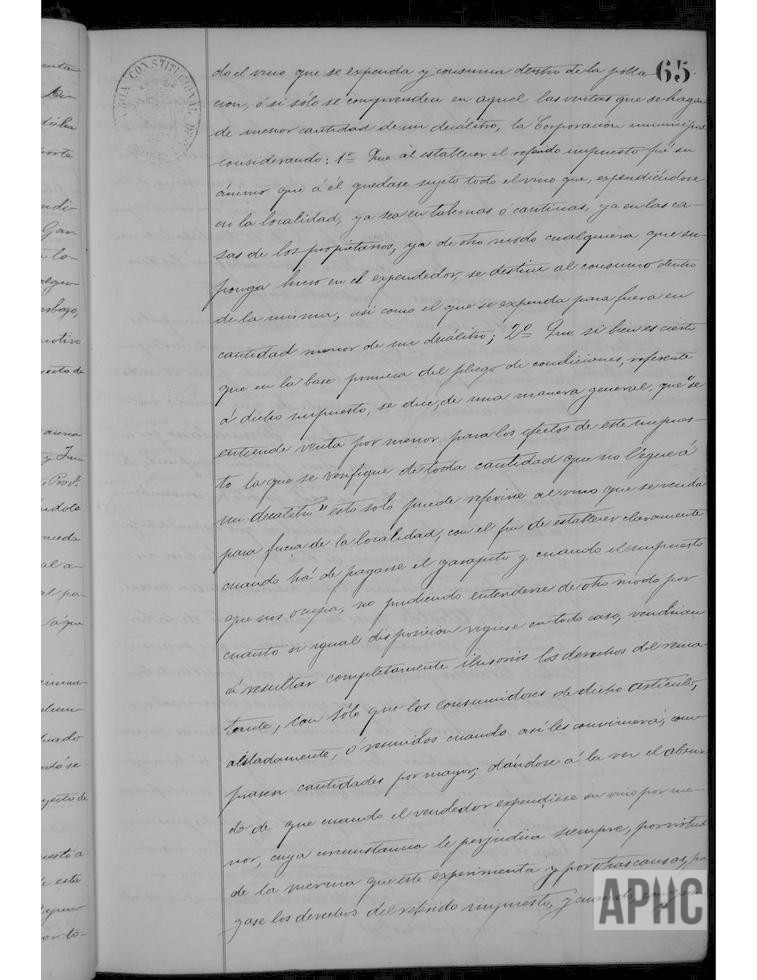 65
do el vino que se expenda y consuma dentro de la pobla-
cion, ó si sólo se comprenden en aquel las ventas que se hagan
de menor cantidad de un decálitro, la Corporación municipal
considerando: 1º Que al establecer el referido impuesto fué su
ánimo que á él quedase sujeto todo el vino que, expendiéndose
en la localidad, ya sea en tabernas ó cantinas, ya en las ca-
sas de los propietarios, ya de otro modo cualquiera que su-
ponga lucro en el expendedor, se destine al consumo dentro
de la misma, así como el que se expenda para fuera en
cantidad menor de un decálitro; 2º Que si bien es cierto
que en la base primera del pliego de condiciones, referente
á dicho impuesto, se dice, de una manera general, que "se
entiende venta por menor para los efectos de este impues-
to la que se verifique de toda cantidad que no llegue á
un decálitro" esto solo puede referirse al vino que se venda
para fuera de la localidad, con el fin de establecer claramente
cuando há de pagarse el garapito y cuando el impuesto
que nos ocupa, no pudiendo entenderse de otro modo por
cuanto si igual disposición rigiese en todo caso, vendrían
á resultar completamente ilusorios los derechos del rema-
tante, con sólo que los consumidores de dicho artículo,
aisladamente, ó reunidos cuando así les conviniera, com-
prasen cantidades por mayor, dándose á la vez el absur-
do de que cuando el vendedor expendiese su vino por me-
nor, cuya circunstancia le perjudica siempre, por virtud
de la merma que éste experimenta y por otras causas, pa-
gase los derechos del referido impuesto, y cuando
APHC
CONSTITUCIONAL